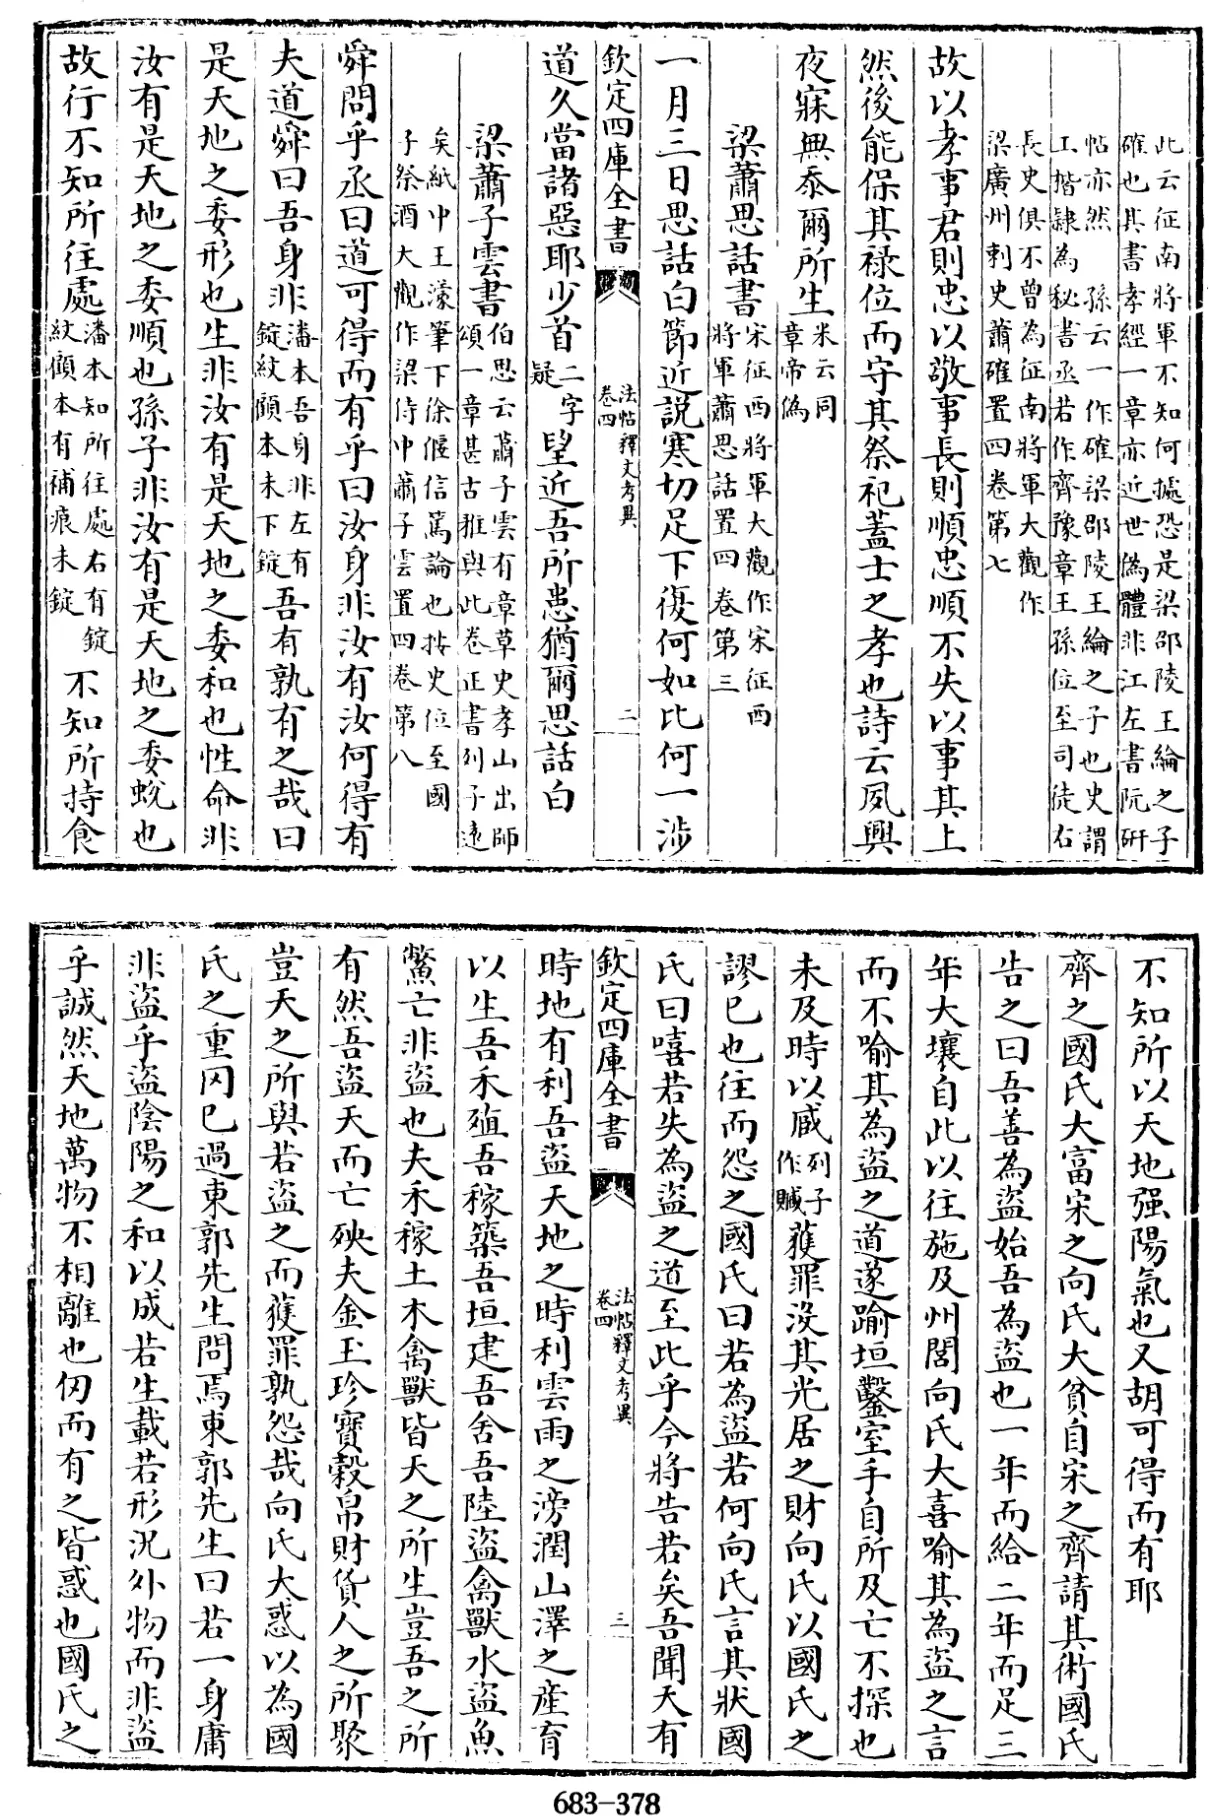 此云征南將軍不知何據恐是梁邵陵王綸之子
確也其書孝經一章亦近世偽體非江左書阮研
帖亦然 孫云一作確梁邵陵王綸之子也史謂
工楷隸為秘書丞若作齊豫章王孫位至司徒右
長史俱不曾為征南將軍大觀作
梁廣州刺史蕭確置四卷第七
故以孝事君則忠以敬事長則順忠順不失以事其上
然後能保其祿位而守其祭祀蓋士之孝也詩云夙興
夜寐無忝爾所生米云同
章帝偽
梁蕭思話書宋征西將軍大觀作宋征西
將軍蕭思話置四卷第三
一月三日思話白節近說寒切足下復何如比何一涉
欽定四庫全書
法帖釋文考異
卷四
二
道久當諸惡耶少首二字
疑望近吾所患猶爾思話白
梁蕭子雲書伯思云蕭子雲有章草史孝山出師
頌一章甚古雅與此卷正書列子遠
矣紙中王濛筆下徐偃信篤論也按史位至國
子祭酒大觀作梁侍中蕭子雲置四卷第八
舜問乎丞曰道可得而有乎曰汝身非汝有汝何得有
夫道舜曰吾身非潘本吾身非左有
錠紋顧本未下錠吾有孰有之哉曰
是天地之委形也生非汝有是天地之委和也性命非
汝有是天地之委順也孫子非汝有是天地之委蛻也
故行不知所往處潘本知所往處右有錠
紋顧本有補痕未錠不知所持食
不知所以天地强陽氣也又胡可得而有耶
齊之國氏大富宋之向氏大貧自宋之齊請其術國氏
告之曰吾善為盜始吾為盜也一年而給二年而足三
年大壤自此以往施及州閭向氏大喜喻其為盜之言
而不喻其為盜之道遂踰垣鑿室手自所及亡不探也
未及時以慼列子
作贓獲罪没其光居之財向氏以國氏之
謬已也往而怨之國氏曰若為盜若何向氏言其狀國
氏曰嘻若失為盜之道至此乎今將告若矣吾聞天有
欽定四庫全書
法帖釋文考異
卷四
三
時地有利吾盜天地之時利雲雨之滂潤山澤之產育
以生吾禾殖吾稼築吾垣建吾舍吾陸盜禽獸水盜魚
鱉亡非盜也夫禾稼土木禽獸皆天之所生豈吾之所
有然吾盜天而亡殃夫金玉珍寶穀帛財貨人之所聚
豈天之所與若盜之而獲罪孰怨哉向氏大惑以為國
氏之重罔已過東郭先生問焉東郭先生曰若一身庸
非盜乎盜陰陽之和以成若生載若形況外物而非盜
乎誠然天地萬物不相離也仞而有之皆惑也國氏之
683-378